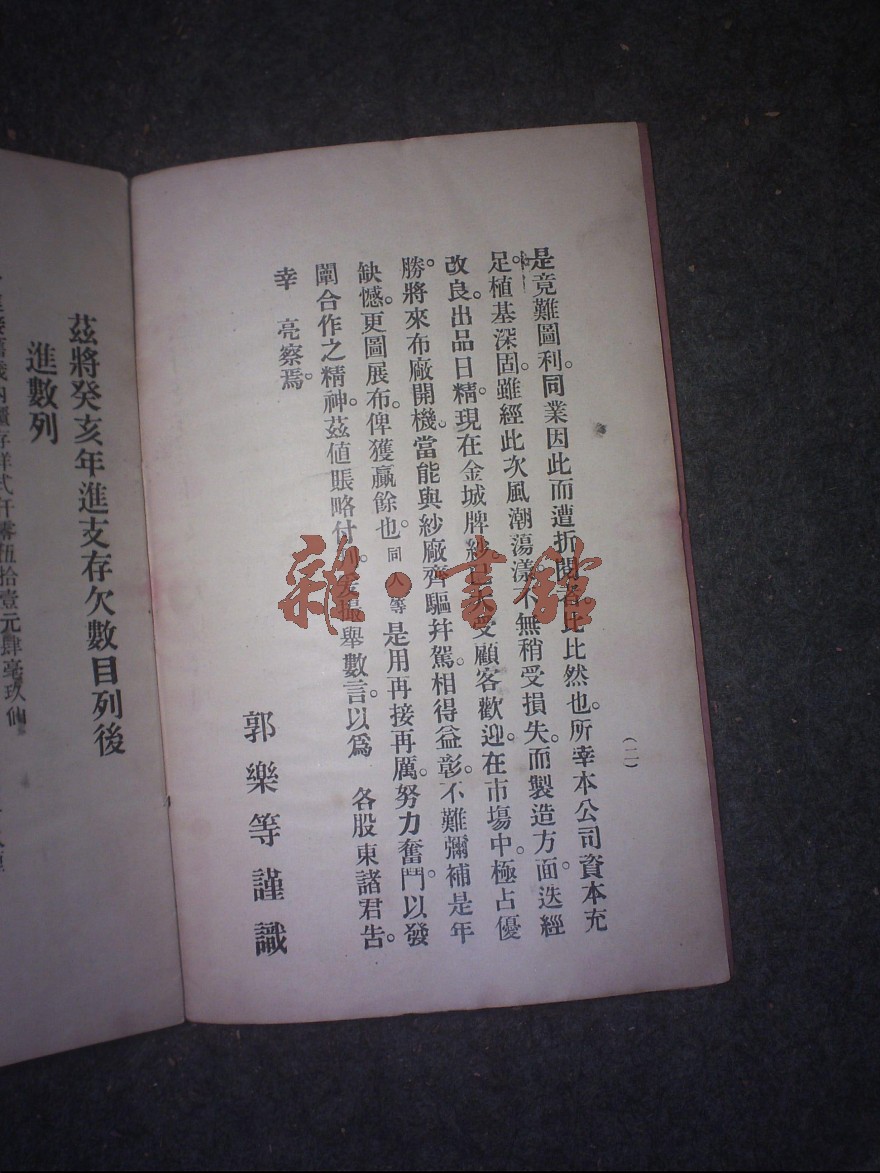 （二）
是竟難圖利。同業因此而遭折閱者比比然也。所幸本公司資本充
足。植基深固。雖經此次風潮蕩漾。不無稍受損失。而製造方面。迭經
改良。出品日精。現在金城牌紗已大受顧客歡迎。在市塲中。極占優
勝。將來布廠開機。當能與紗廠齊驅并駕。相得益彰。不難彌補是年
缺憾。更圖展布。俾獲贏餘也。同人等是用再接再厲。努力奮鬥。以發
闡合作之精神。茲值賬略付。撮舉數言。以爲 各股東諸君告。
幸 亮察焉。
郭樂等謹識
茲將癸亥年進支存欠數目列後
進數列
存洋弍仟零伍拾壹元肆毫玖仙
雜·書館